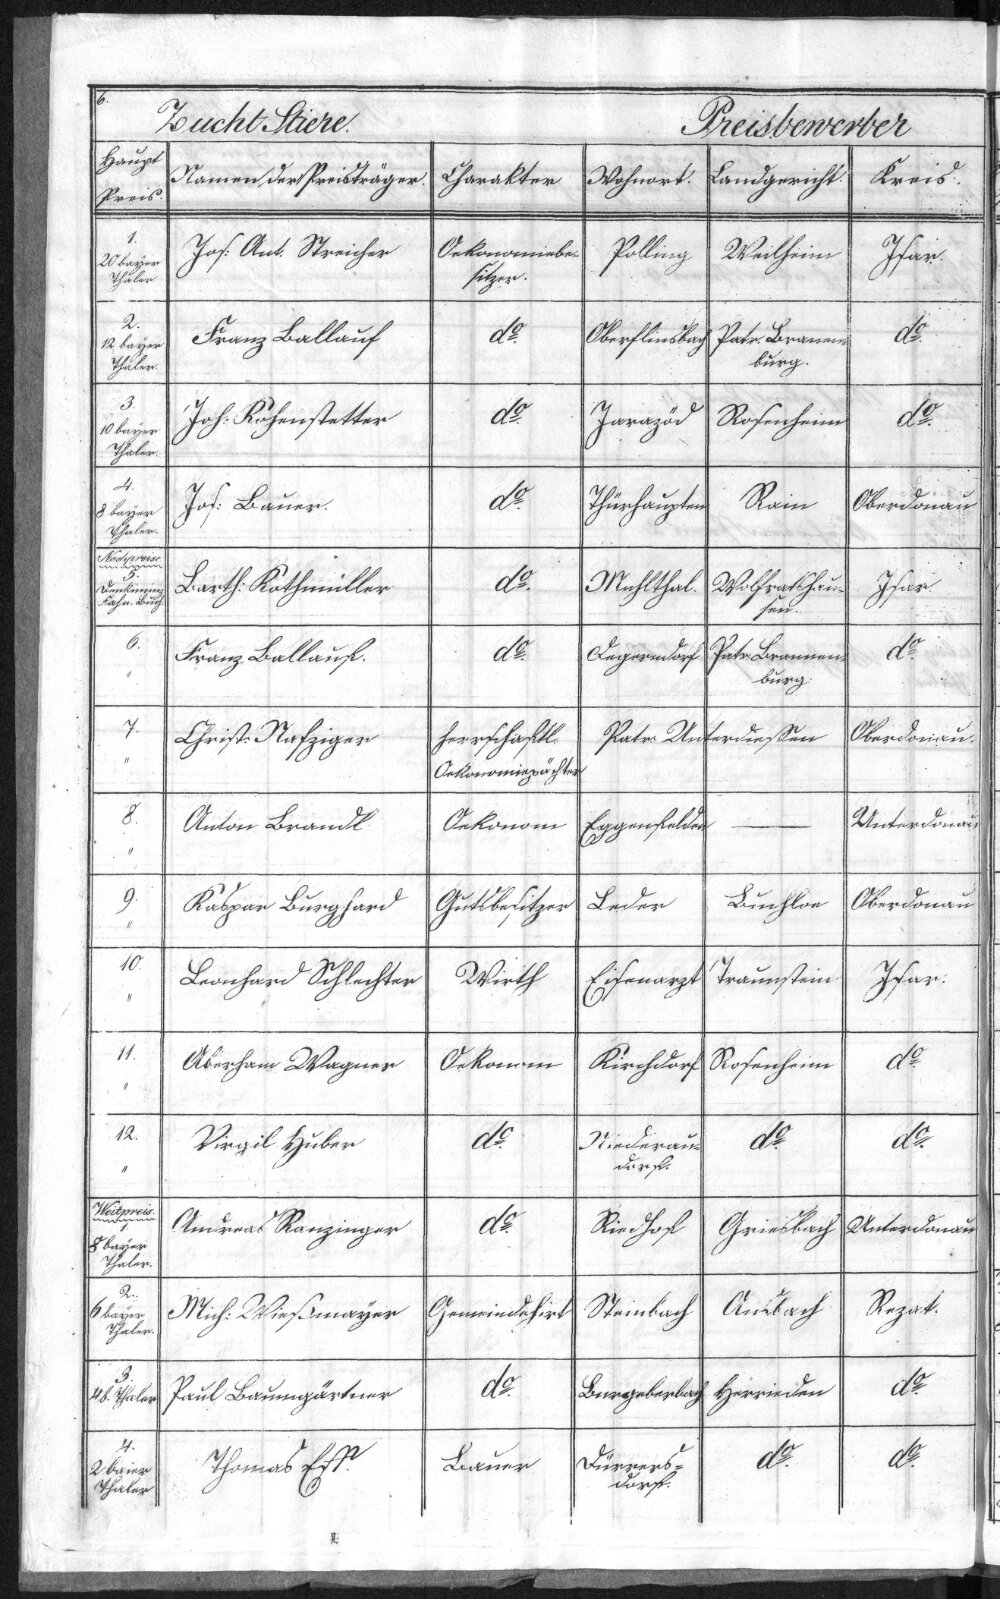 6.
Zucht Stiere. Preisbewerber
Haupt Preis. Namen der Preisträger. Charakter Wohnort. Landgericht. Kreis.
1. 20 bayer Thaler. Jos: Ant. Streicher Oekonomiebe- sitzer. Polling Weilheim Isar.
2. 12 bayer Thaler. Franz Ballauf do. Oberflinsbach Patr. Brannen- burg. do.
3. 10 bayer Thaler. Joh: Kohenstetter do. Jarazöd Rosenheim do.
4. 8 bayer Thaler. Jos: Bauer. do. Thürhaupten Rain Oberdonau
Nachpreise 5. Denkmünz Fahn. Buch. Barth: Kothmüller do. Muhlthal. Wolfratshau- sen. Isar
6. " Franz Ballauf. do. Degerndorf Patr. Brannen- burg. do.
7. " Christ: Nafziger herrschaftl. Oekonomiepächter Patr. Unterdiessen Oberdonau.
8. " Anton Brandl Oekonom Eggenfelden — Unterdonau
9. " Kaspar Burghard Gutsbesitzer Leder Buchloe Oberdonau
10. " Leonhard Schlechter Wirth Eisenarzt Traunstein Isar.
11. " Aberham Wagner Oekonom Kirchdorf Rosenheim do.
12. " Virgil Huber do. Niederau- dorf. do. do.
Weitpreis. 1 8 bayer Thaler. Andreas Ranzinger do. Riedhof Griesbach Unterdonau
2. 6 bayer Thaler. Mich: Wießmayer Gemeindehirt Steinbach Ansbach Rezat.
3. 4 b. Thaler Paul Baumgärtner do. Burgoberbach Herrieden do.
4. 2 baier Thaler Thomas Eff. Bauer Dürrers- dorf. do. do.